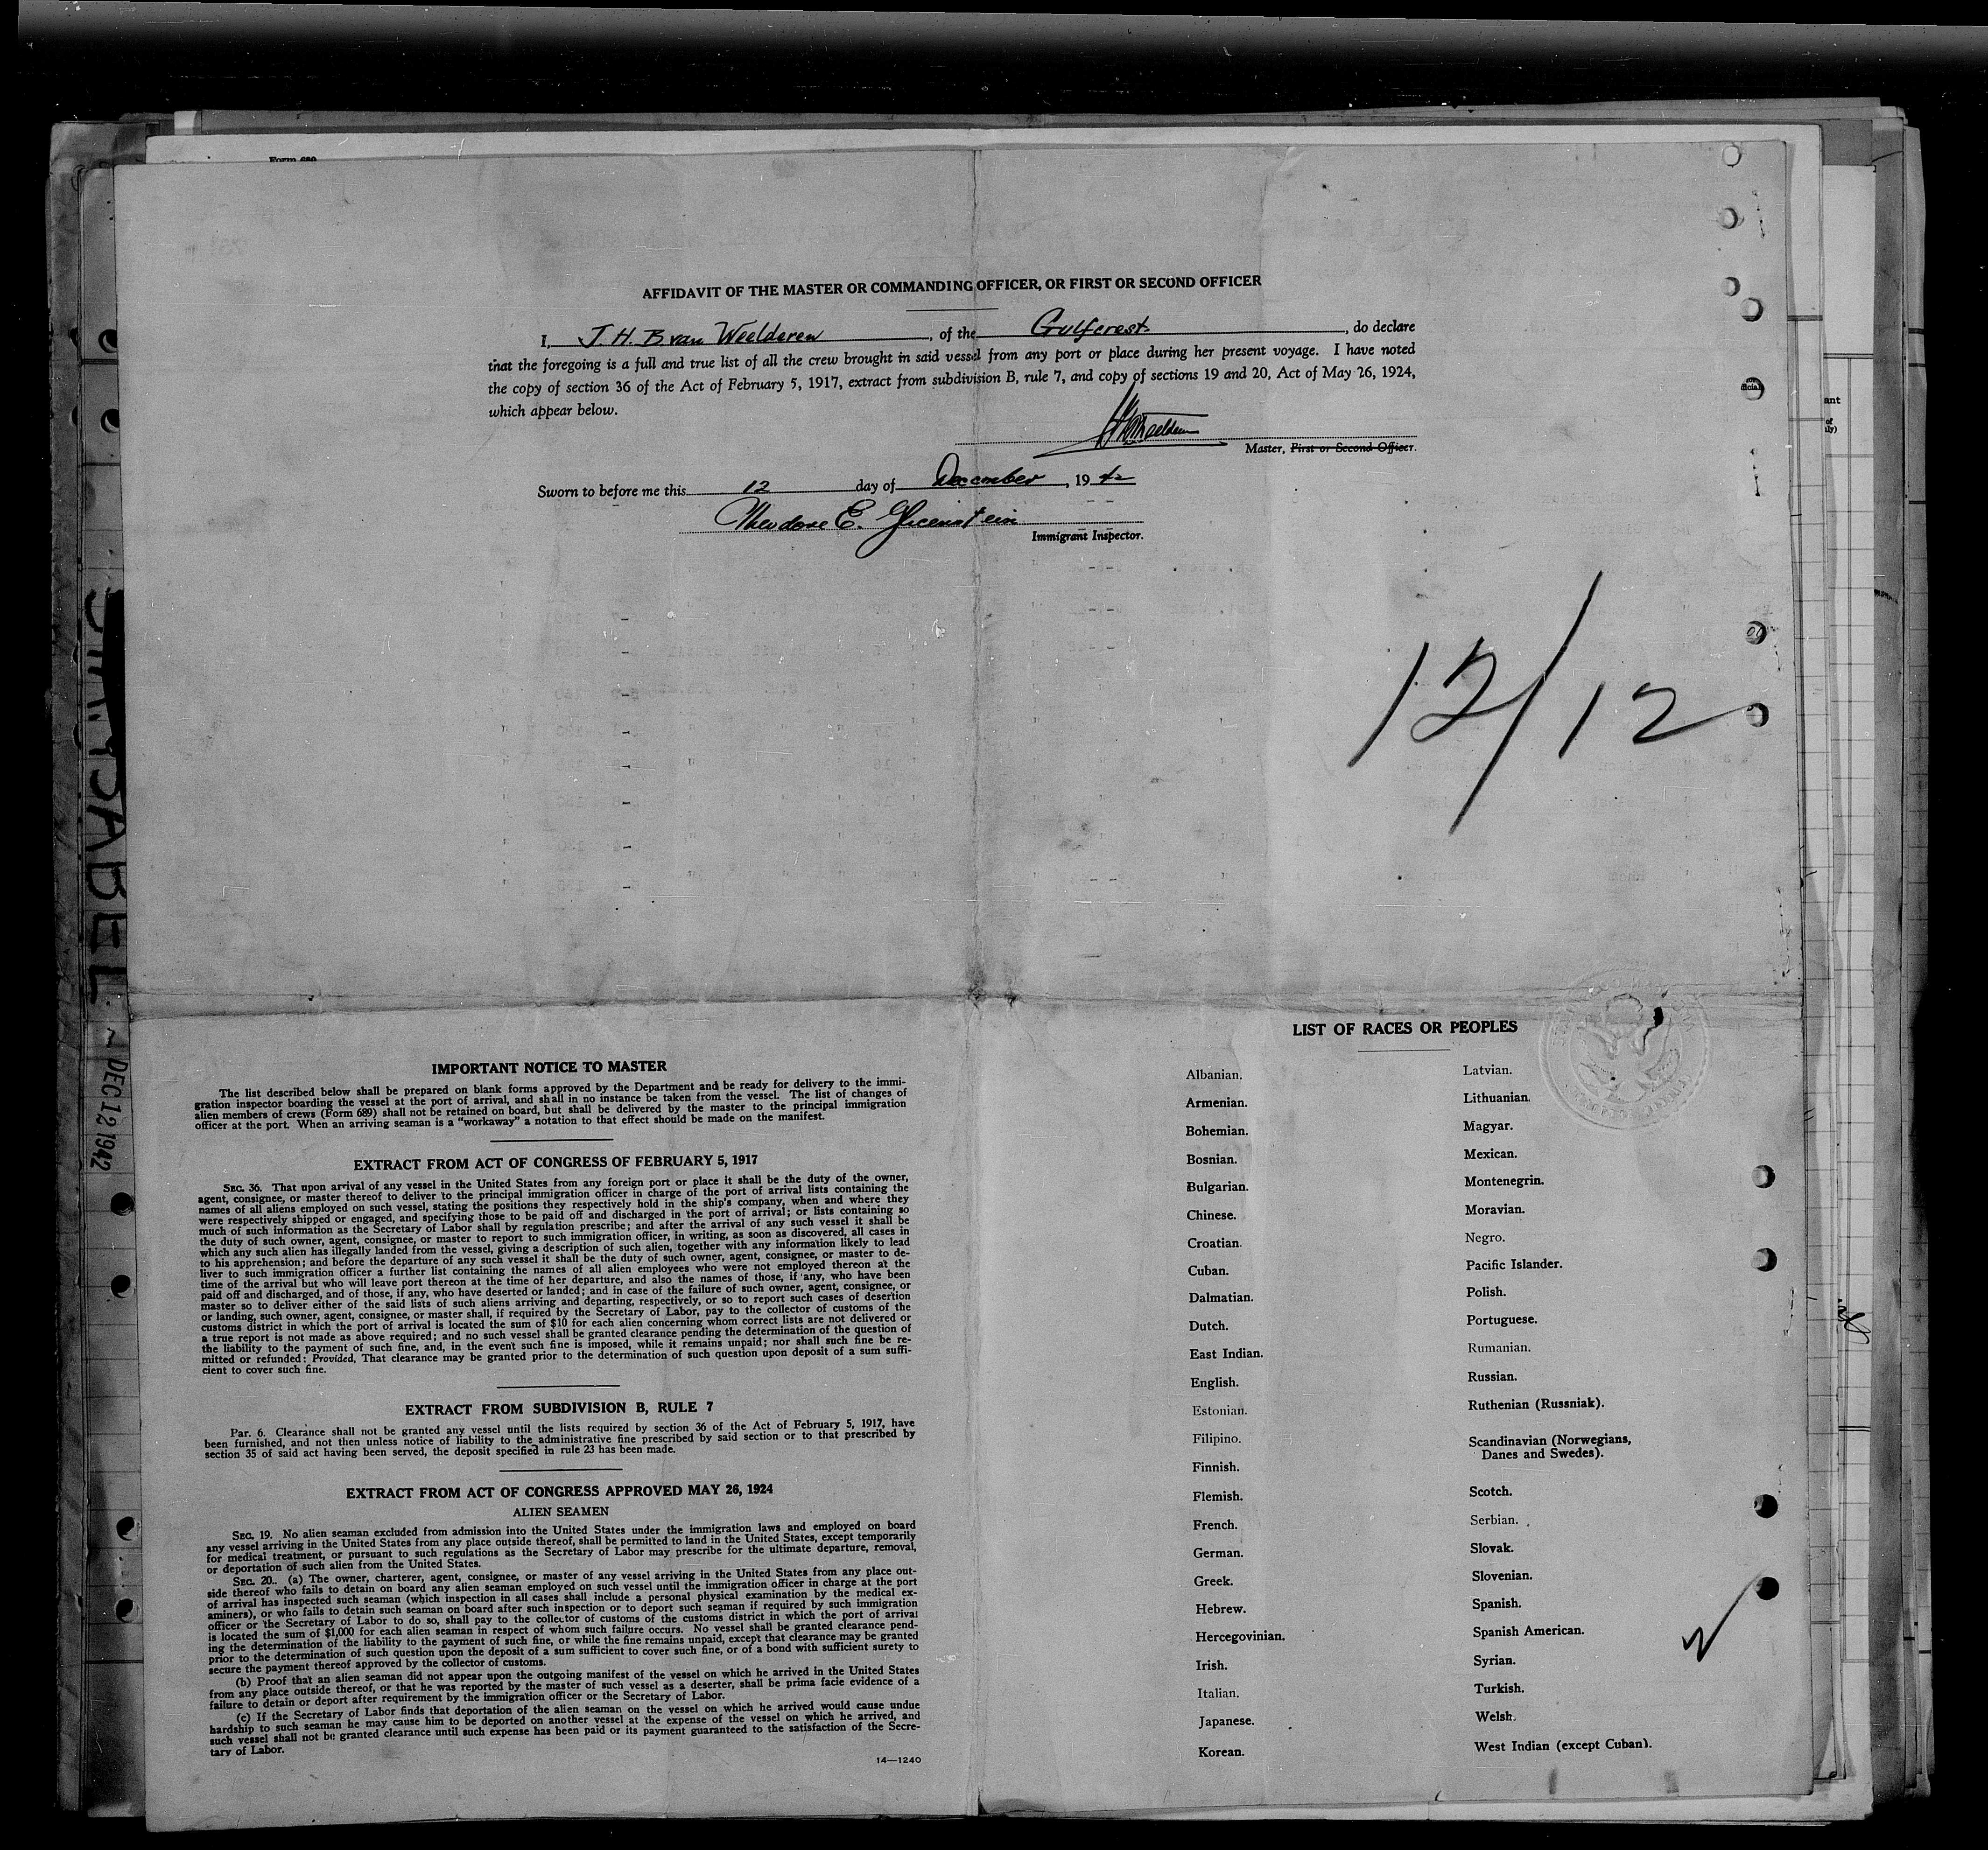 Form 689
AFFIDAVIT OF THE MASTER OR COMMANDING OFFICER, OR FIRST OR SECOND OFFICER
I, J. H. B van Weelderen, of the Gulfcrest, do declare
that the foregoing is a full and true list of all the crew brought in said vessel from any port or place during her present voyage. I have noted
the copy of section 36 of the Act of February 5, 1917, extract from subdivision B, rule 7, and copy of sections 19 and 20, Act of May 26, 1924,
which appear below.
Master, First or Second Officer.
Sworn to before me this 12 day of December, 19 42
Theodore E. Greenstein
Immigrant Inspector.
12/12
SABEL ~ DEC 12 1942
IMPORTANT NOTICE TO MASTER
The list described below shall be prepared on blank forms approved by the Department and be ready for delivery to the immi-
gration inspector boarding the vessel at the port of arrival, and shall in no instance be taken from the vessel. The list of changes of
alien members of crews (Form 689) shall not be retained on board, but shall be delivered by the master to the principal immigration
officer at the port. When an arriving seaman is a "workaway" a notation to that effect should be made on the manifest.
EXTRACT FROM ACT OF CONGRESS OF FEBRUARY 5, 1917
SEC. 36. That upon arrival of any vessel in the United States from any foreign port or place it shall be the duty of the owner,
agent, consignee, or master thereof to deliver to the principal immigration officer in charge of the port of arrival lists containing the
names of all aliens employed on such vessel, stating the positions they respectively hold in the ship's company, when and where they
were respectively shipped or engaged, and specifying those to be paid off and discharged in the port of arrival; or lists containing so
much of such information as the Secretary of Labor shall by regulation prescribe; and after the arrival of any such vessel it shall be
the duty of such owner, agent, consignee, or master to report to such immigration officer, in writing, as soon as discovered, all cases in
which any such alien has illegally landed from the vessel, giving a description of such alien, together with any information likely to lead
to his apprehension; and before the departure of any such vessel it shall be the duty of such owner, agent, consignee, or master to de-
liver to such immigration officer a further list containing the names of all alien employees who were not employed thereon at the
time of the arrival but who will leave port thereon at the time of her departure, and also the names of those, if any, who have been
paid off and discharged, and of those, if any, who have deserted or landed; and in case of the failure of such owner, agent, consignee, or
master so to deliver either of the said lists of such aliens arriving and departing, respectively, or so to report such cases of desertion
or landing, such owner, agent, consignee, or master shall, if required by the Secretary of Labor, pay to the collector of customs of the
customs district in which the port of arrival is located the sum of $10 for each alien concerning whom correct lists are not delivered or
a true report is not made as above required; and no such vessel shall be granted clearance pending the determination of the question of
the liability to the payment of such fine, and, in the event such fine is imposed, while it remains unpaid; nor shall such fine be re-
mitted or refunded: Provided, That clearance may be granted prior to the determination of such question upon deposit of a sum suffi-
cient to cover such fine.
EXTRACT FROM SUBDIVISION B, RULE 7
Par. 6. Clearance shall not be granted any vessel until the lists required by section 36 of the Act of February 5, 1917, have
been furnished, and not then unless notice of liability to the administrative fine prescribed by said section or to that prescribed by
section 35 of said act having been served, the deposit specified in rule 23 has been made.
EXTRACT FROM ACT OF CONGRESS APPROVED MAY 26, 1924
ALIEN SEAMEN
SEC. 19. No alien seaman excluded from admission into the United States under the immigration laws and employed on board
any vessel arriving in the United States from any place outside thereof, shall be permitted to land in the United States, except temporarily
for medical treatment, or pursuant to such regulations as the Secretary of Labor may prescribe for the ultimate departure, removal,
or deportation of such alien from the United States.
SEC. 20.. (a) The owner, charterer, agent, consignee, or master of any vessel arriving in the United States from any place out-
side thereof who fails to detain on board any alien seaman employed on such vessel until the immigration officer in charge at the port
of arrival has inspected such seaman (which inspection in all cases shall include a personal physical examination by the medical ex-
aminers), or who fails to detain such seaman on board after such inspection or to deport such seaman if required by such immigration
officer or the Secretary of Labor to do so, shall pay to the collector of customs of the customs district in which the port of arrival
is located the sum of $1,000 for each alien seaman in respect of whom such failure occurs. No vessel shall be granted clearance pend-
ing the determination of the liability to the payment of such fine, or while the fine remains unpaid, except that clearance may be granted
prior to the determination of such question upon the deposit of a sum sufficient to cover such fine, or of a bond with sufficient surety to
secure the payment thereof approved by the collector of customs.
(b) Proof that an alien seaman did not appear upon the outgoing manifest of the vessel on which he arrived in the United States
from any place outside thereof, or that he was reported by the master of such vessel as a deserter, shall be prima facie evidence of a
failure to detain or deport after requirement by the immigration officer or the Secretary of Labor.
(c) If the Secretary of Labor finds that deportation of the alien seaman on the vessel on which he arrived would cause undue
hardship to such seaman he may cause him to be deported on another vessel at the expense of the vessel on which he arrived, and
such vessel shall not be granted clearance until such expense has been paid or its payment guaranteed to the satisfaction of the Secre-
tary of Labor.
14—1240
LIST OF RACES OR PEOPLES
Albanian.
Armenian.
Bohemian.
Bosnian.
Bulgarian.
Chinese.
Croatian.
Cuban.
Dalmatian.
Dutch.
East Indian.
English.
Estonian.
Filipino.
Finnish.
Flemish.
French.
German.
Greek.
Hebrew.
Hercegovinian.
Irish.
Italian.
Japanese.
Korean.
Latvian.
Lithuanian.
Magyar.
Mexican.
Montenegrin.
Moravian.
Negro.
Pacific Islander.
Polish.
Portuguese.
Rumanian.
Russian.
Ruthenian (Russniak).
Scandinavian (Norwegians,
Danes and Swedes).
Scotch.
Serbian.
Slovak.
Slovenian.
Spanish.
Spanish American.
Syrian.
Turkish.
Welsh.
West Indian (except Cuban).